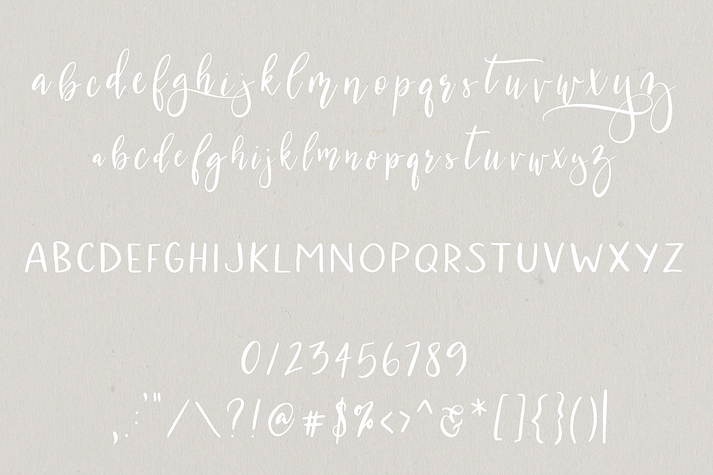 abcdefghijklmnopqrstuvwxyz
abcdefghijklmnopqrstuvwxyz
ABCDEFGHIJKLMNOPQRSTUVWXYZ
0123456789
,.:;'"/\?!@#$%<>^&*[]{}()|